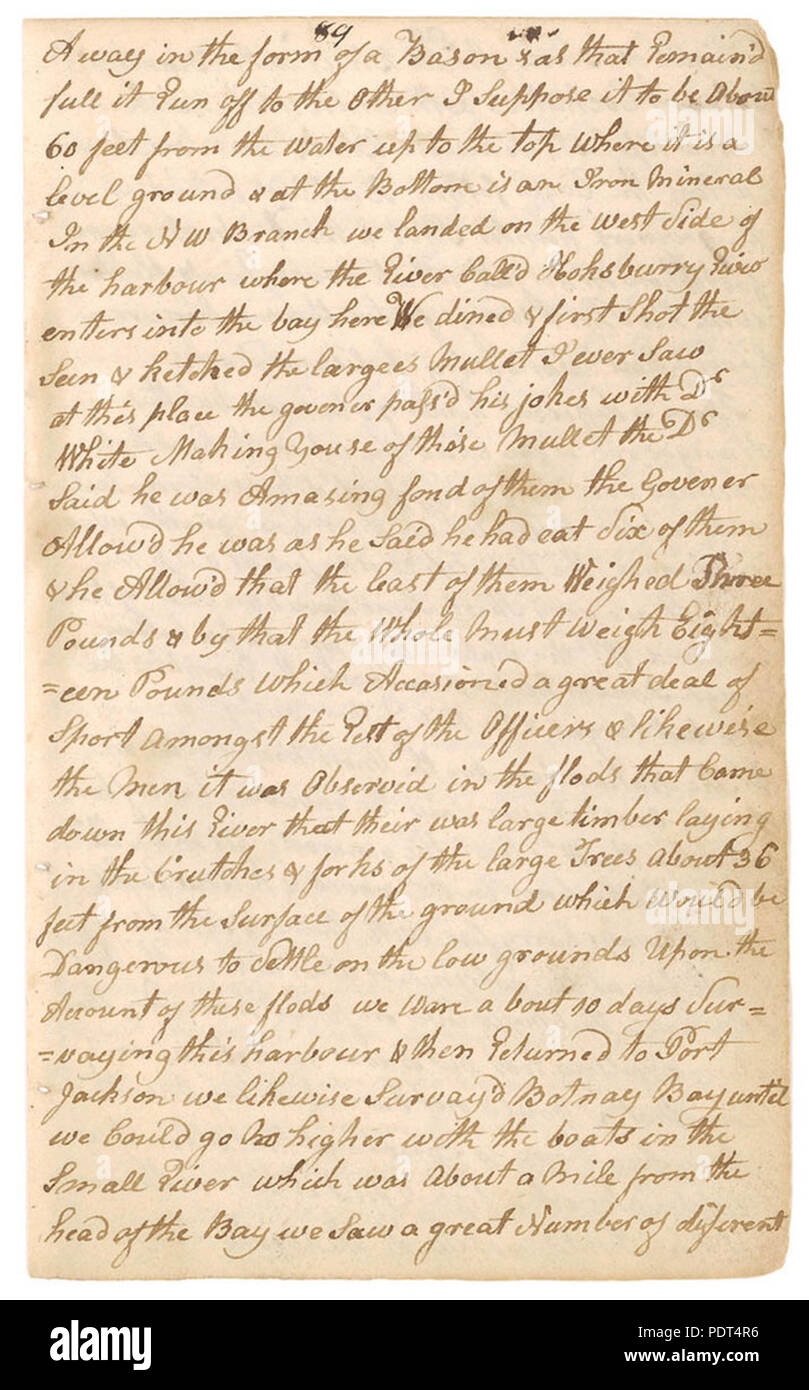 89
Away in the form of a Bason & as that Remain'd
full it Run off to the Other I Suppose it to be About
60 feet from the water up to the top Where it is a
level ground & at the Bottom is an Iron Mineral
In the N W Branch we landed on the West Side of
the harbour where the River Call'd Hohsburry River
enters into the bay here We dined & first Shot the
Seen & ketched the largees Mullet I ever Saw
at this place the govener pass'd his jokes with Dr
White Making Youse of those Mullet the Dr
Said he was Amasing fond of them the Govener
Allow'd he was as he Said he had eat Six of them
& he Allow'd that the least of them Weighed Three
Pounds & by that the Whole Must Weigh Eight=
=een Pounds Which Accasioned a great deal of
Sport Amongst the Rest of the Officers & likewise
the Men it was Observid in the flods that Came
down this River that their was large timber laying
in the Crutches & forks of the large Trees About 36
feet from the Surface of the ground which Would be
Dangerous to Settle on the low grounds Upon the
Account of these flods we Ware a bout 10 days Sur=
=vaying this harbour & then Returned to Port
Jackson we likewise Survay'd Botnay Bay until
we Could go No higher with the boats in the
Small River which was About a Mile from the
head of the Bay we Saw a great Number of different
alamy
alamy
alamy
alamy
alamy
Image ID: PDT4R6
www.alamy.com